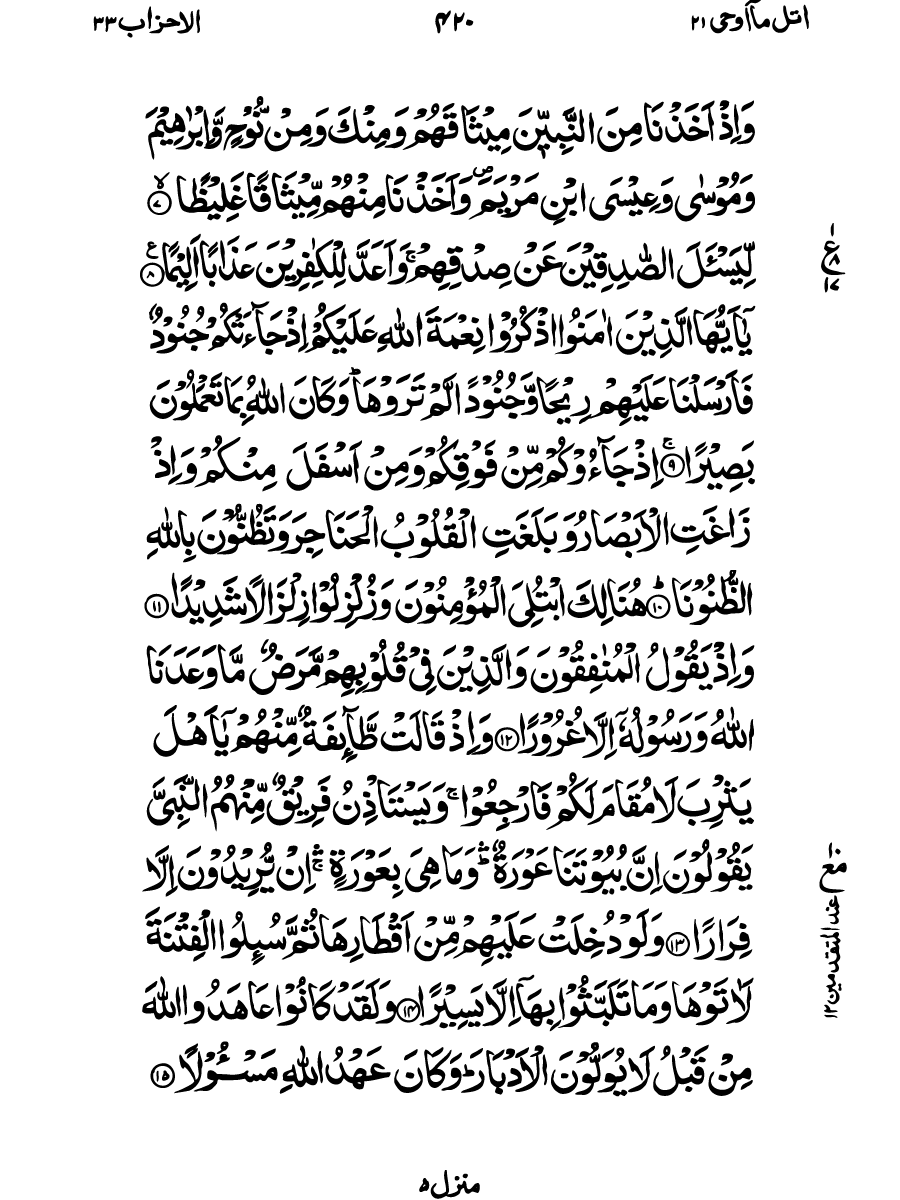 اتل ماۤ اوحی ۲۱
۴۲۰
الاحزاب ۳۳
وَاِذْ اَخَذْنَا مِنَ النَّبِیّٖنَ مِیْثَاقَهُمْ وَمِنْكَ وَمِنْ نُّوْحٍ وَّاِبْرٰهِیْمَ
وَمُوْسٰی وَعِیْسَی ابْنِ مَرْیَمَ ۪ وَاَخَذْنَا مِنْهُمْ مِّیْثَاقًا غَلِیْظًا ۙ۷
لِّیَسْـَٔلَ الصّٰدِقِیْنَ عَنْ صِدْقِهِمْ ۚ وَاَعَدَّ لِلْكٰفِرِیْنَ عَذَابًا اَلِیْمًا ۸ع
یٰۤاَیُّهَا الَّذِیْنَ اٰمَنُوا اذْكُرُوْا نِعْمَةَ اللّٰهِ عَلَیْكُمْ اِذْ جَآءَتْكُمْ جُنُوْدٌ
فَاَرْسَلْنَا عَلَیْهِمْ رِیْحًا وَّجُنُوْدًا لَّمْ تَرَوْهَا ؕ وَكَانَ اللّٰهُ بِمَا تَعْمَلُوْنَ
بَصِیْرًا ۚ۹ اِذْ جَآءُوْكُمْ مِّنْ فَوْقِكُمْ وَمِنْ اَسْفَلَ مِنْكُمْ وَاِذْ
زَاغَتِ الْاَبْصَارُ وَبَلَغَتِ الْقُلُوْبُ الْحَنَاجِرَ وَتَظُنُّوْنَ بِاللّٰهِ
الظُّنُوْنَا ؕ۱۰ هُنَالِكَ ابْتُلِیَ الْمُؤْمِنُوْنَ وَزُلْزِلُوْا زِلْزَالًا شَدِیْدًا ۱۱
وَاِذْ یَقُوْلُ الْمُنٰفِقُوْنَ وَالَّذِیْنَ فِیْ قُلُوْبِهِمْ مَّرَضٌ مَّا وَعَدَنَا
اللّٰهُ وَرَسُوْلُهٗۤ اِلَّا غُرُوْرًا ۱۲ وَاِذْ قَالَتْ طَّآىِٕفَةٌ مِّنْهُمْ یٰۤاَهْلَ
یَثْرِبَ لَا مُقَامَ لَكُمْ فَارْجِعُوْا ۚ وَیَسْتَاْذِنُ فَرِیْقٌ مِّنْهُمُ النَّبِیَّ
یَقُوْلُوْنَ اِنَّ بُیُوْتَنَا عَوْرَةٌ ۛؕ وَمَا هِیَ بِعَوْرَةٍ ۛۚ اِنْ یُّرِیْدُوْنَ اِلَّا
فِرَارًا ۱۳ وَلَوْ دُخِلَتْ عَلَیْهِمْ مِّنْ اَقْطَارِهَا ثُمَّ سُىِٕلُوا الْفِتْنَةَ
لَاٰتَوْهَا وَمَا تَلَبَّثُوْا بِهَاۤ اِلَّا یَسِیْرًا ۱۴ وَلَقَدْ كَانُوْا عَاهَدُوا اللّٰهَ
مِنْ قَبْلُ لَا یُوَلُّوْنَ الْاَدْبَارَ ؕ وَكَانَ عَهْدُ اللّٰهِ مَسْـُٔوْلًا ۱۵
۱
ع
۸
۱۷
۱۰
مع
عند المتقدمین ۱۲
منزل ۵